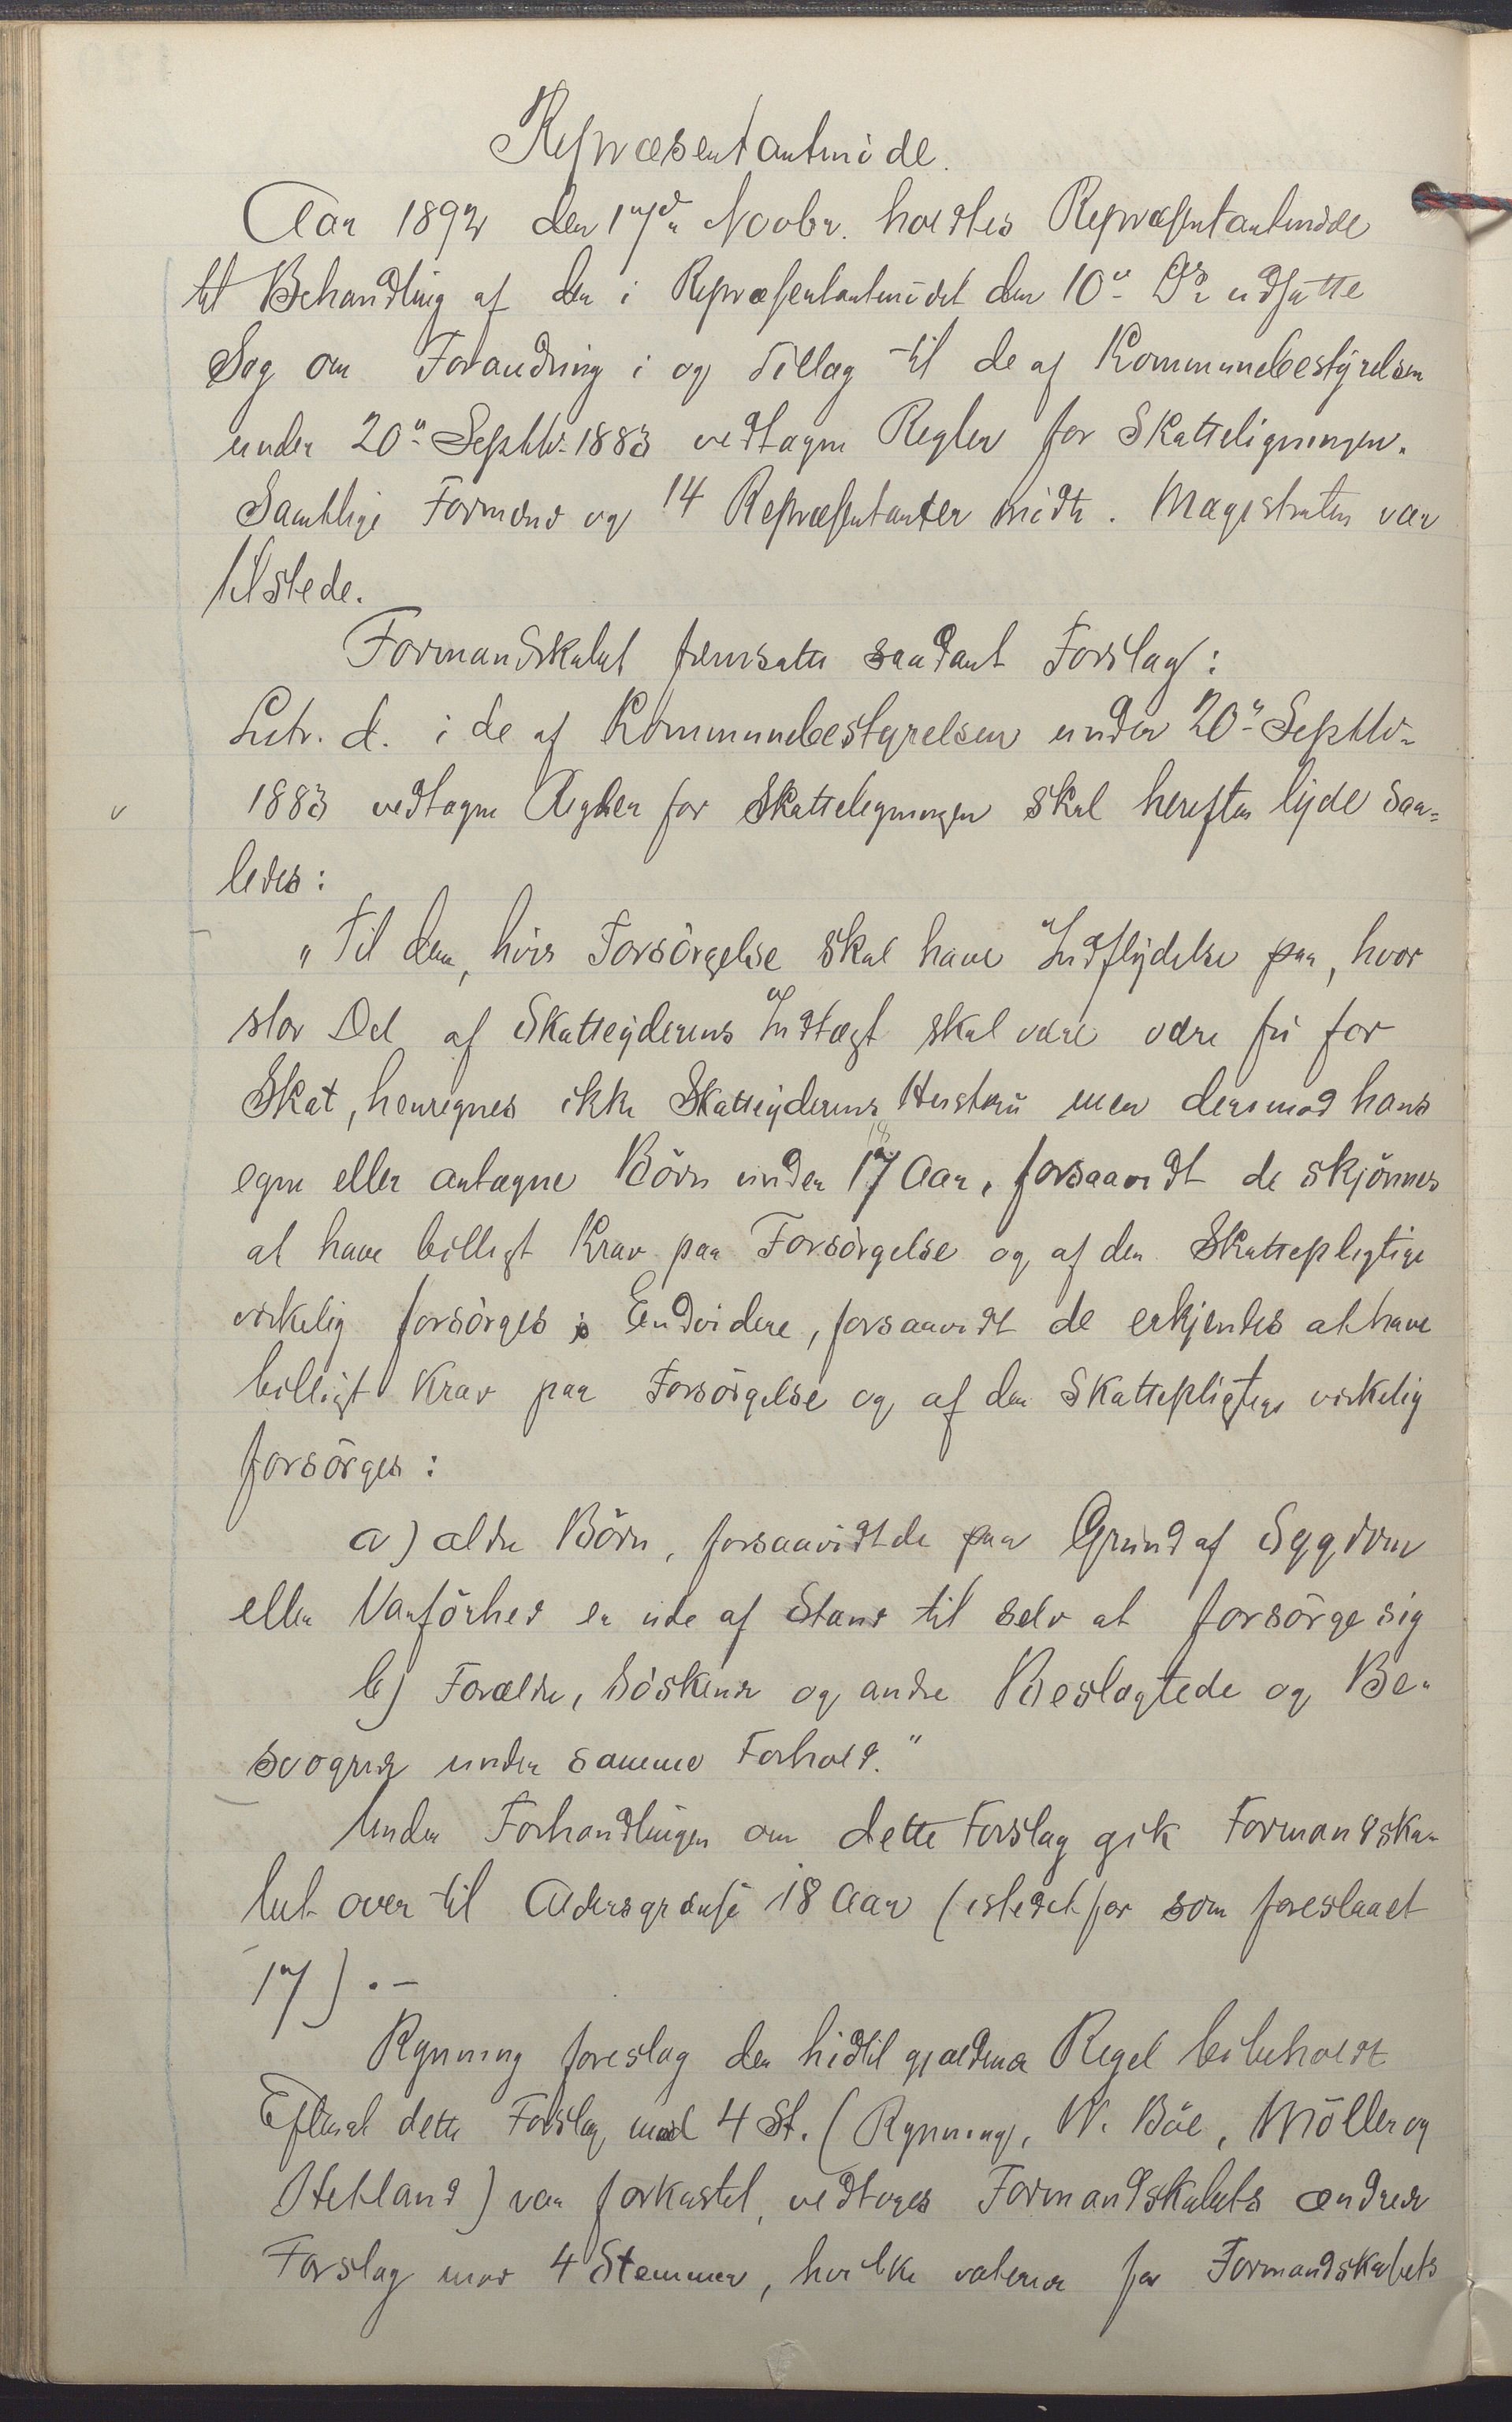 Repræsentantmöde.
Aar 1892 den 17de Novbr. holdtes Repræsentantmöde
til Behandling af den i Repræsentantmödet den 10de Ds. udsatte
Sag om Forandring i og Tillæg til de af Kommunebestyrelsen
under 20de Septbr. 1883 vedtagne Regler for Skatteligningen.
Samtlige Formænd og 14 Repræsentanter mödte. Magistraten var
tilstede.
Formandskabet fremsatte saadant Forslag:
Litr. d. i de af Kommunebestyrelsen under 20de Septbr.
1883 vedtagne Regler for Skatteligningen skal herefter lyde saa=
ledes:
"Til dem, hvis Forsörgelse skal have Indflydelse paa, hvor
stor Del af Skatteyderens Indtægt skal være være fri for
Skat, henregnes ikke Skatteyderens Hustru men derimod hans
18
egne eller antagne Börn under 17 Aar, forsaavidt de skjönnes
at have billigt Krav paa Forsörgelse og af den Skattepligtige
virkelig forsörges; Endvidere, forsaavidt de erkjendes at have
billigt Krav paa Forsörgelse og af den Skattepligtige virkelig
forsörges:
a) ældre Börn, forsaavidt de paa Grund af Sygdom
eller Vanförhed er ude af Stand til selv at forsörge sig
b) Forældre, Söskende og andre Beslægtede og Be-
svogrede under samme Forhold."
Under Forhandlingen om dette Forslag gik Formandska-
bet over til Aldersgrænse 18 Aar (istedetfor som foreslaaet
17).-
Rynning foreslog den hidtil gjældende Regel bibeholdt
Efterat dette Forslag mod 4 St. (Rynning, W. Böe, Möller og
Hetland) var forkastet, vedtoges Formandskabets ændrede
Forslag mod 4 Stemmer, hvilke voterede for Formandskabets